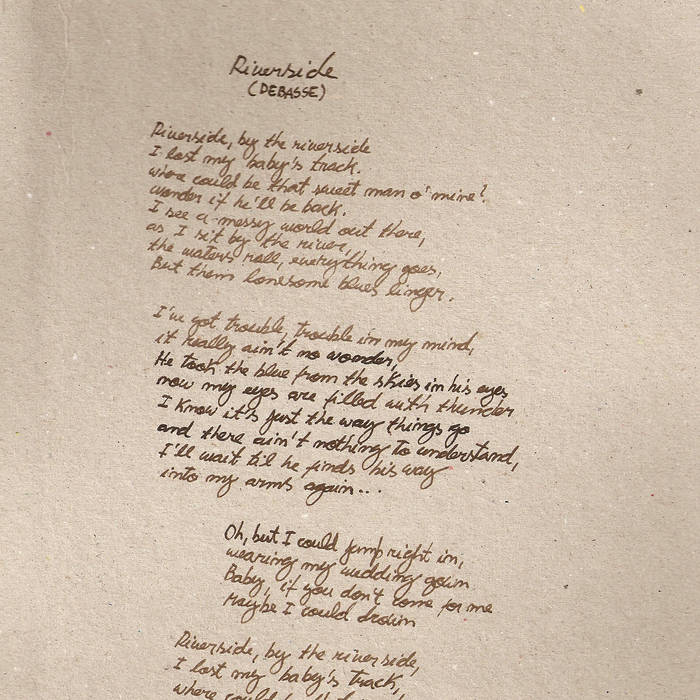 Riverside
(DEBASSE)
Riverside, by the riverside
I lost my baby's track.
where could be that sweet man o' mine?
wonder if he'll be back.
I see a messy world out there,
as I sit by the river,
the waters roll, everything goes,
But them lonesome blues linger.
I've got trouble, trouble in my mind,
it really ain't no wonder,
He took the blue from the skies in his eyes
now my eyes are filled with thunder
I know it's just the way things go
and there ain't nothing to understand,
I'll wait til he finds his way
into my arms again...
Oh, but I could jump right in,
wearing my wedding gown
Baby, if you don't come for me
Maybe I could drown
Riverside, by the riverside,
I lost my baby's track,
where could